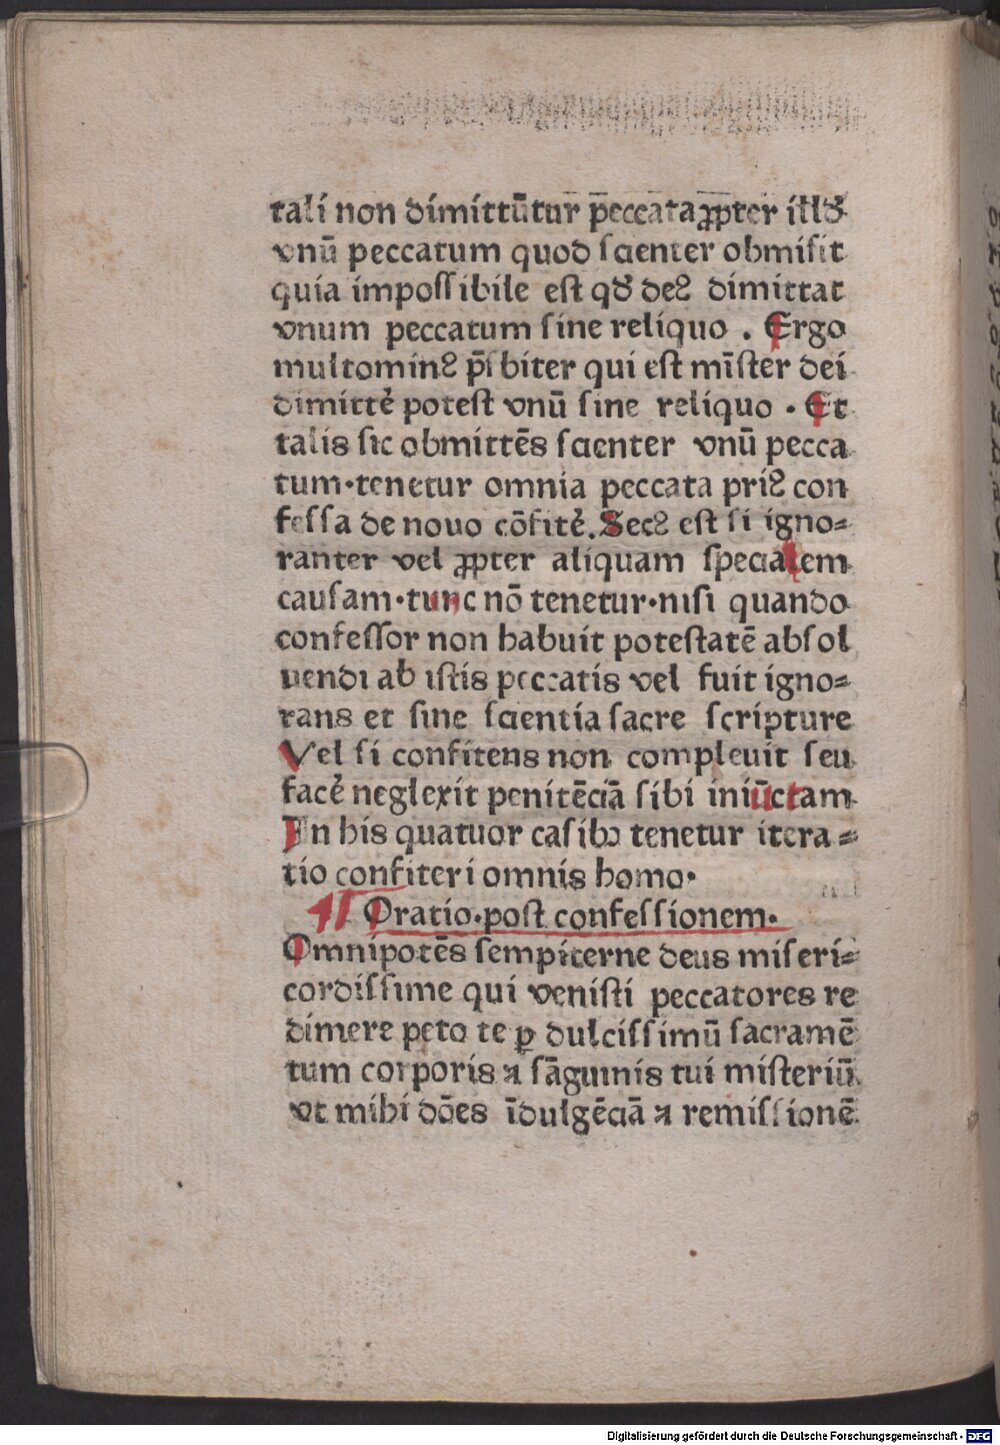 tali non dimittūtur p̄eccata ꝓpter illꝰ
vnū peccatum quod scienter obmisit
quia impossibile est qꝺ deꝰ dimittat
vnum peccatum sine reliquo . Ergo
multominꝰ p̄sbiter qui est mīster dei
dimittẻ potest vnū sine reliquo . Et
talis sic obmittēs scienter vnū pecca
tum·tenetur omnia peccata priꝰ con
fessa de nouo cōfitẻ. Secꝰ est si igno⸗
ranter vel ꝓpter aliquam specialem
causam·tunc nō tenetur·nisi quando
confessor non habuit potestatē absol
uendi ab istis peccatis vel fuit igno⸗
rans et sine scientia sacre scripture
Vel si confitens non compleuit seu
facẻ neglexit penitēciā sibi iniūctam
In his quatuor casibꝫ tenetur itera⸗
tio confiteri omnis homo·
¶ Oratio·post confessionem·
Omnipotēs sempiterne deus miseri⸗
cordissime qui venisti peccatores re
dimere peto te ꝑ dulcissimū sacramē
tum corporis ⁊ sāguinis tui misteriū
vt mihi dōes īdulgēciā ⁊ remissionē
Digitalisierung gefördert durch die Deutsche Forschungsgemeinschaft - DFG